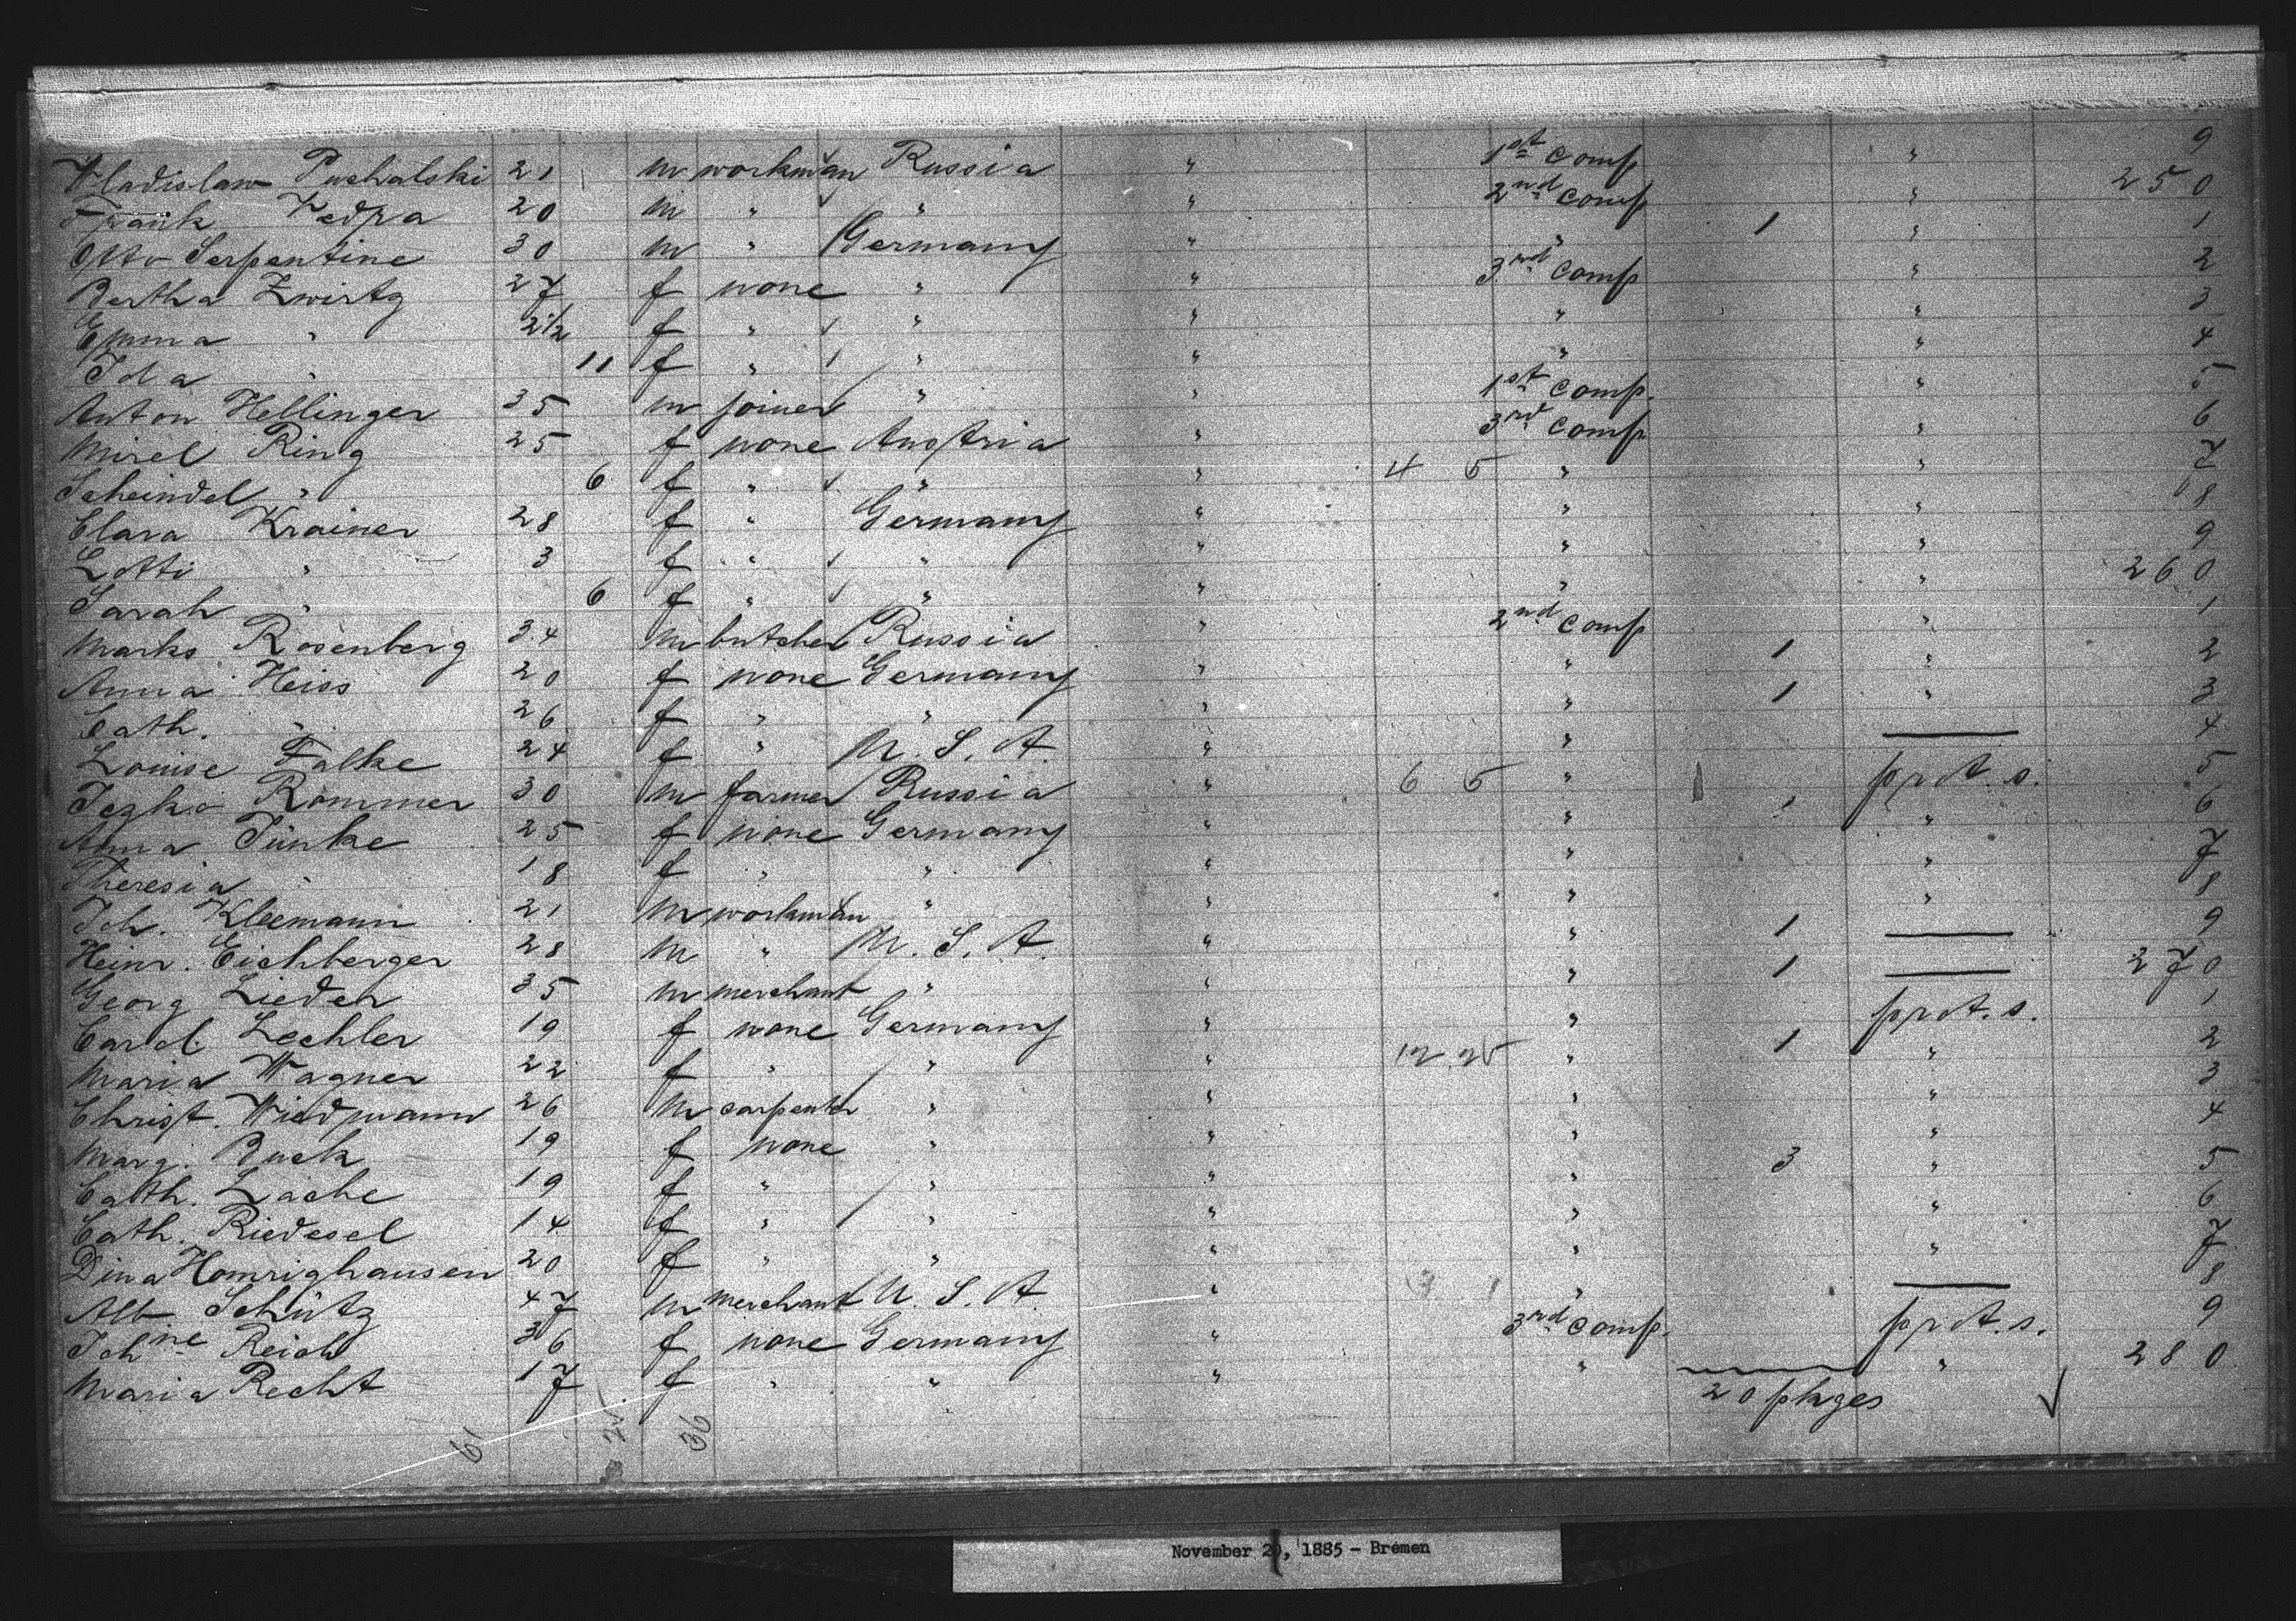 Wladislaw Puchalski 21 m workman Russia " 1st comp " 9
Frank Kedra 20 m " " " 2nd comp " 250
Otto Serpentine 30 m " Germany " " 1 " 1
Bertha Zwirtz 27 f none " " 3rd comp " 2
Emma " 2 1/2 f " " " " " 3
Ida " 11 f " " " " " 4
Anton Hellinger 35 m joiner " " 1st comp. " 5
Mirel Ring 25 f none Austria " 3rd comp " 6
Scheindel " 6 f " " " 4 5 " " 7
Clara Krainer 28 f " Germany " " " 8
Lotti " 3 f " " " " " 9
Sarah " 6 f " " " " " 260
Marks Rosenberg 34 m butcher Russia " 2nd comp " 1
Anna Heiss 20 f none Germany " " 1 " 2
Cath. " 26 f " " " " 1 " 3
Louise Falke 24 f " U. S. A. " " — 4
Rommer 30 m farmer Russia " 6 5 " 1 prct. s. 5
Anna Tünke 25 f none Germany " " 1 " 6
Theresia " 18 f " " " " " 7
Joh. Kleemann 21 m workman " " " " 8
Heinr. Eichberger 28 m " U. S. A. " " 1 — 9
Georg Lieder 35 m merchant " " " 1 — 270
Carol. Lechler 19 f none Germany " " prct. s. 1
Maria Wagner 22 f " " " 12 25 " 1 " 2
Christ. Wiedmann 26 m carpenter " " " " 3
Marg. Buck 19 f none " " " " 4
Cath. Lache 19 f " " " " 3 " 5
Cath. Riedesel 14 f " " " " " 6
Dina Homrighausen 20 f " " " " " 7
Alb. Schütz 47 m merchant U. S. A. " " — 8
Johne Reich 36 f none Germany " 3rd comp. prct. s. 9
Maria Recht 17 f " " " " " 280
20 pkges
61 36
November 20, 1885 - Bremen